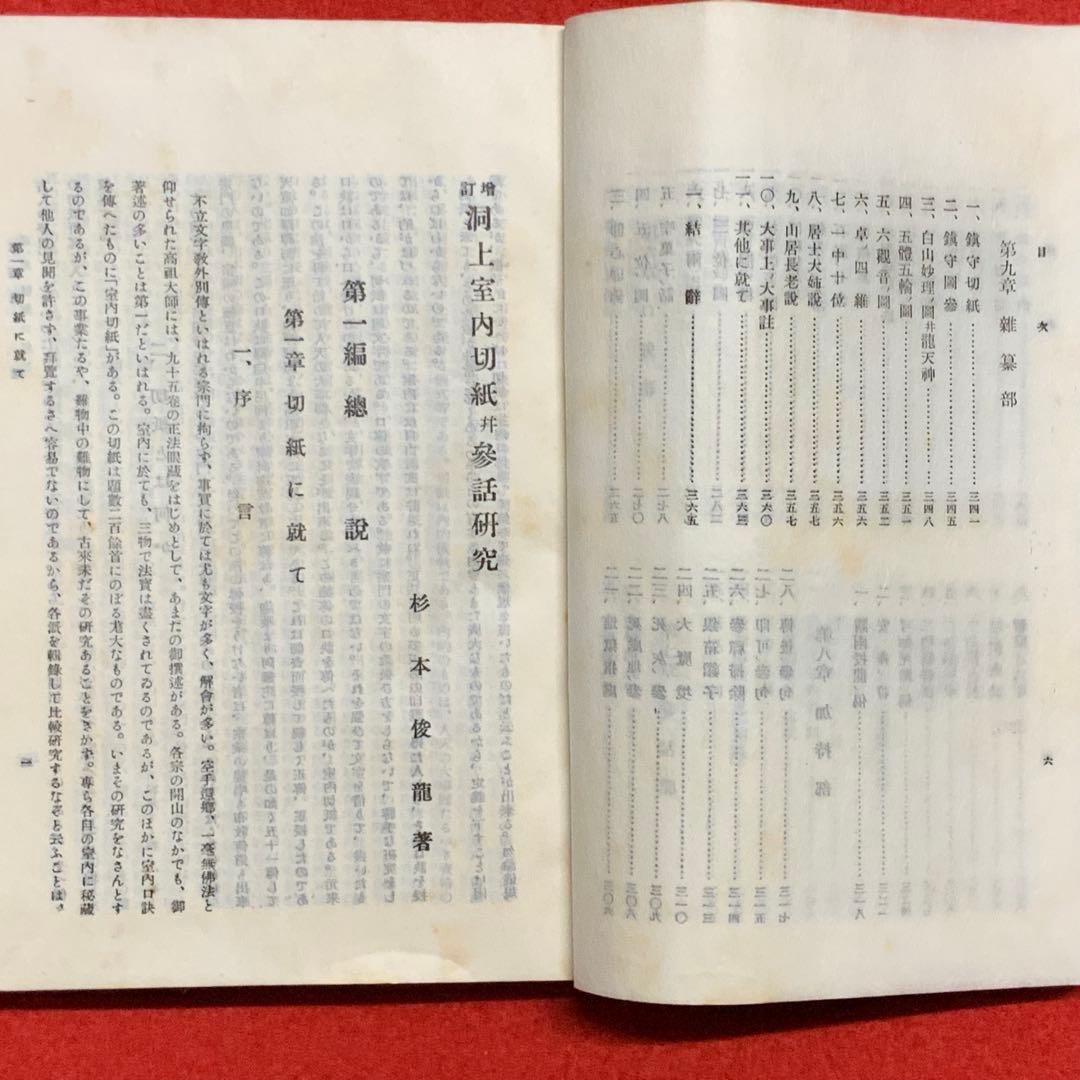 目次
六
第九章 雜纂部
一、鎭守切紙…………三四一
二、鎭守圖參…………三四五
三、白山妙理ノ圖幷龍天神…………三四八
四、五體五輪ノ圖…………三五一
五、六觀音ノ圖…………三五二
六、卓ノ四維…………三五三
七、一中十位…………三五六
八、居士大姉說…………三五七
九、山居長老說…………三五七
一〇、大事上ノ大事註…………三六〇
一一、其他に就て…………三六三
一、結辭…………三六五
增訂 洞上室內切紙幷參話硏究
杉本俊龍著
第一編 總說
第一章 切紙に就て
一、序言
不立文字敎外別傳といはれる宗門に拘らず、事實に於ては尤も文字が多く、解會が多い。空手還鄕、一毫無佛法と
仰せられた高祖大師には、九十五卷の正法眼藏をはじめとして、あまたの御撰述がある。各宗の開山のなかでも、御
著述の多いことは第一だといはれる。室內に於ても、三物で法寶は盡くされてゐるのであるが、このほかに室內口訣
を傳へたものに「室內切紙」がある。この切紙は題數二百餘首にのぼる尨大なものである。いまその研究をなさんとす
るのであるが、この事業たるや、難物中の難物にして、古來未だその研究あることをきかず。專ら各自の室內に秘藏
して他人の見聞を許さず、拜覽するさへ容易でないのであるから、各派を輯錄して比較硏究するなぞと云ふことは、
第一章 切紙に就て
一